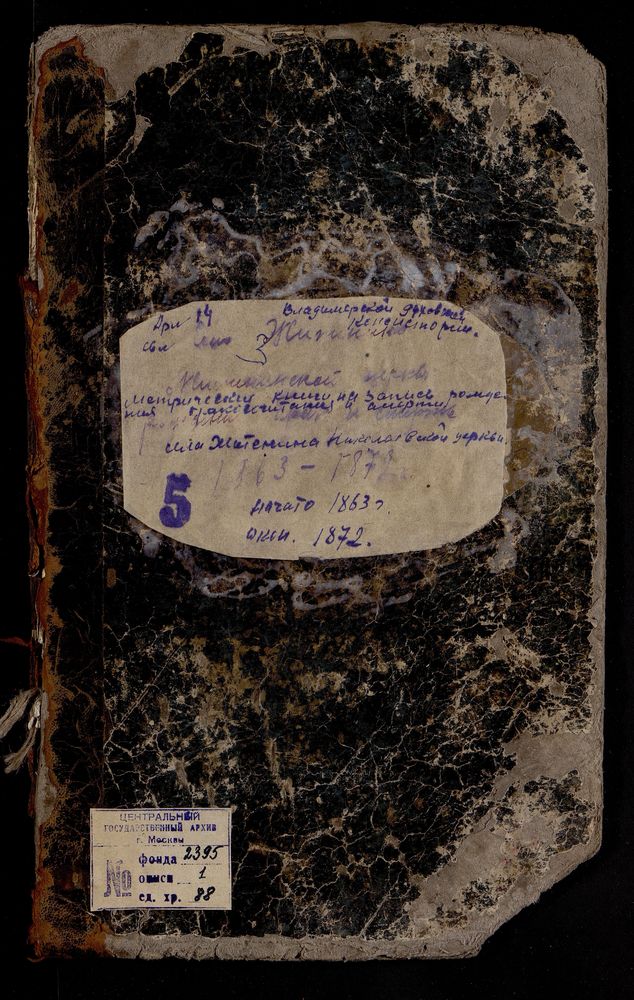 Арл 14 Владимирской духовной
Консистории.
свл
Житенинской церкви
метрически книги на запись рожде-
ния бракосочитания и смерти
села Житенина Николаевской церкви.
1863 – 1872 г.
5
начато 1863 г.
окон. 1872.
ЦЕНТРАЛЬНЫЙ
ГОСУДАРСТВЕННЫЙ АРХИВ
г. Москвы
№
фонда 2395
описи 1
ед. хр. 88